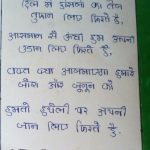 दिल में हौसलों का तेज
तूफान लिए फिरते हैं,
आसमान से ऊंची हम अपनी
उडान लिए फिरते हैं,
वक्त क्या आजमाएगा हमारे
जोश और जूनून को
हमतो हथेली पर अपनी
जान लिए फिरते हैं,